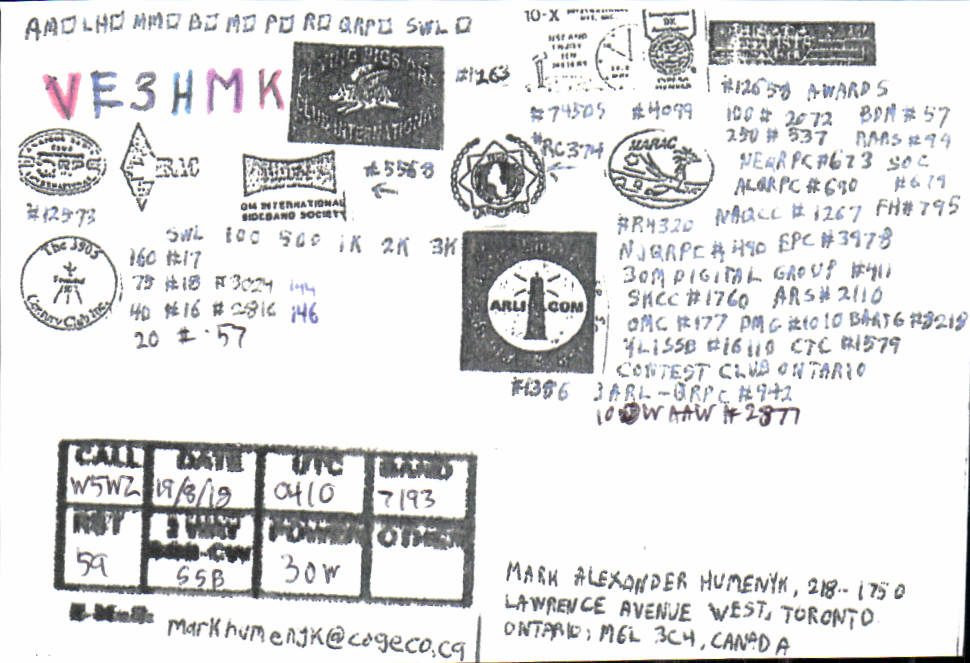 AM☐ LH☐ MM☐ B☐ M☐ P☐ R☐ QRP☐ SWL☐
VE3HMK
FLYING PIGS QRP
CLUB INTERNATIONAL
#1263
10-X INTERNATIONAL
NET, INC.
USE AND
ENJOY
TEN
METERS
#74505 #4099
#12658 AWARDS
100 # 2072 BDM #57
250 # 537 RARS #99
NEQRPC #673 SOC
ALQRPC #690 #679
NAQCC #1267 FH #795
#12573
RAC
OM INTERNATIONAL
SIDEBAND SOCIETY
#5568
#RC374
MARAC
#R4320
NJQRPC #490 EPC #3978
30M DIGITAL GROUP #411
SKCC #1760 ARS #2110
OMC #177 DMC #1010 BARTG #8218
YLISSB #16110 CTC #1579
CONTEST CLUB ONTARIO
JARL-QRPC #942
10 W AAW #2877
The 3905
Century Club Inc.
SWL 100 500 1K 2K 3K
160 #17
75 #18 #3024 144
40 #16 #2816 146
20 # 57
ARLI.COM
#1386
CALL DATE UTC BAND
W5WZ 19/8/18 0410 7193
RST 2 WAY POWER OTHER
SSB-CW
59 SSB 30W
E-Mail:
markhumenyk@cogeco.ca
MARK ALEXANDER HUMENYK, 218-1750
LAWRENCE AVENUE WEST, TORONTO
ONTARIO, M6L 3C4, CANADA